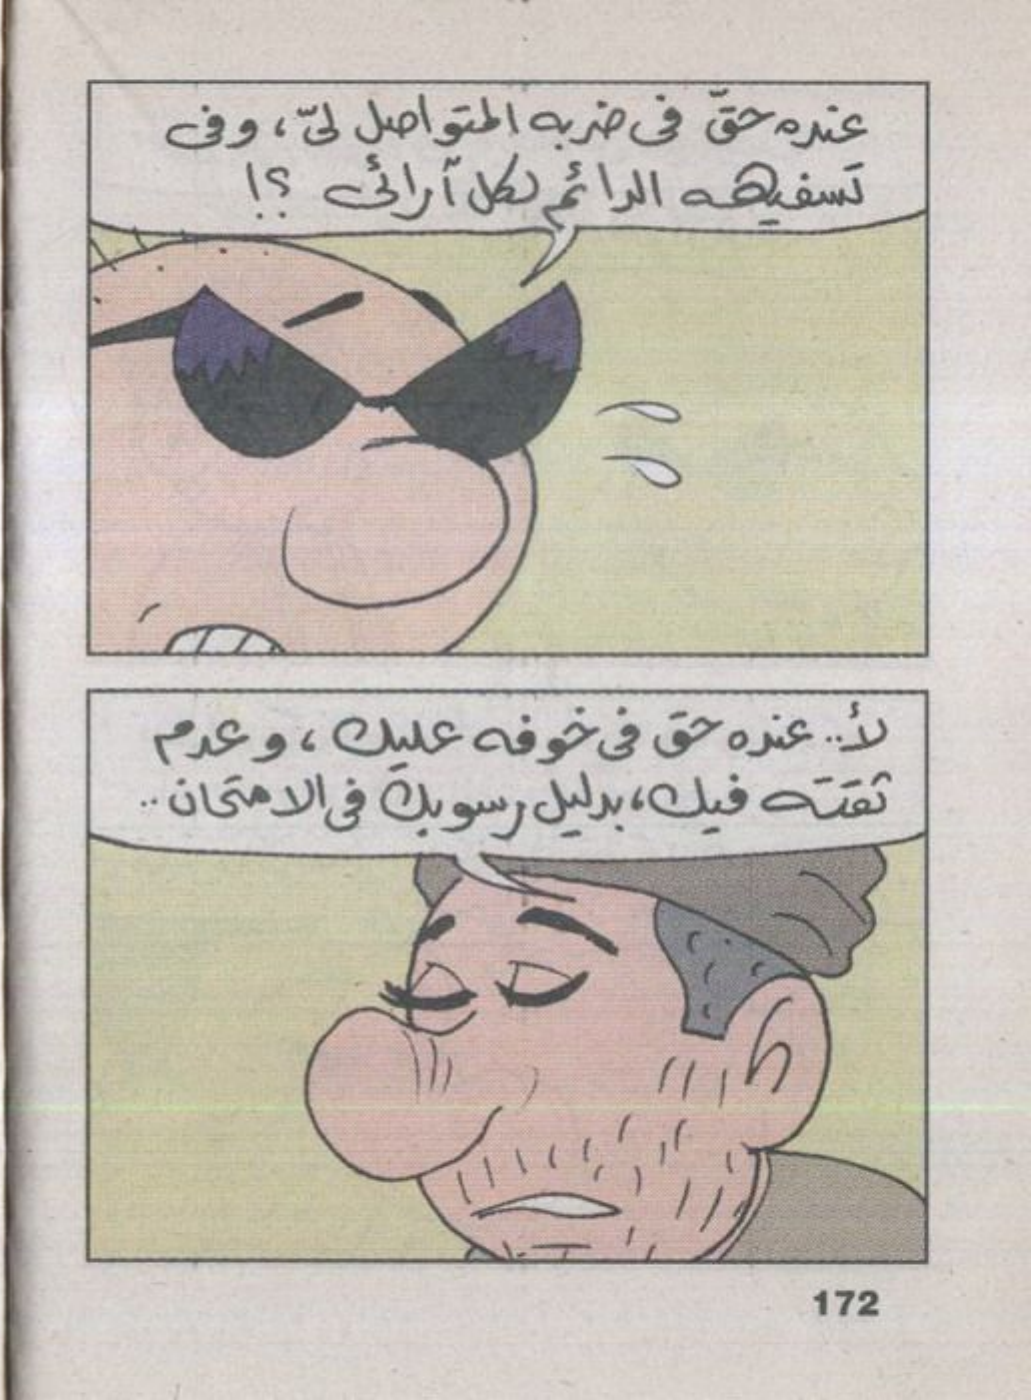 عنده حقّ فى ضربه المتواصل لىّ، وفى
تسفيهه الدائم لكل آرائى ؟!
لأ.. عنده حق فى خوفه عليك، وعدم
ثقته فيك، بدليل رسوبك فى الامتحان..
172